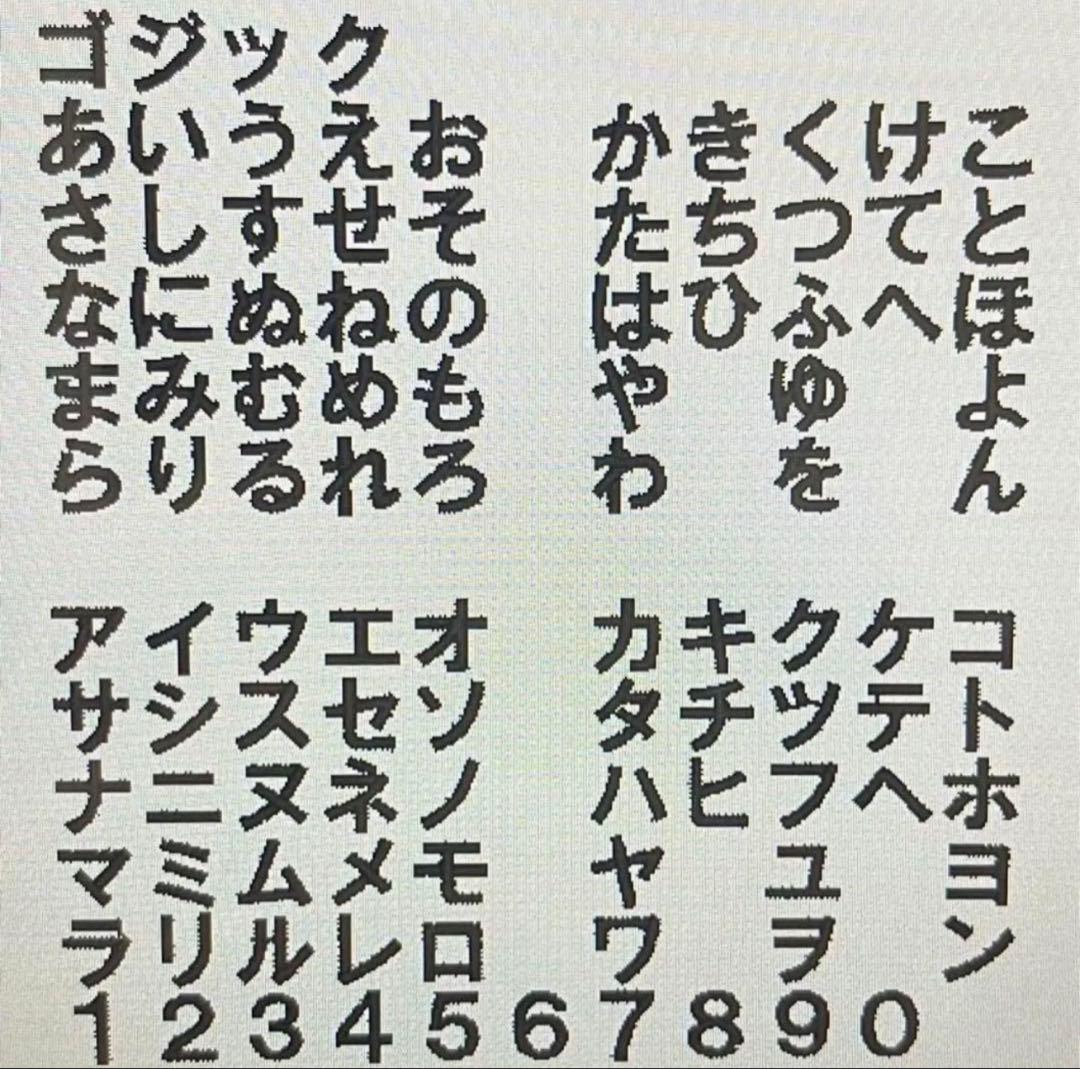 ゴジック
あいうえお かきくけこ
さしすせそ たちつてと
なにぬねの はひふへほ
まみむめも や ゆ よ
らりるれろ わ を ん
アイウエオ カキクケコ
サシスセソ タチツテト
ナニヌネノ ハヒフヘホ
マミムメモ ヤ ユ ヨ
ラリルレロ ワ ヲ ン
1234567890